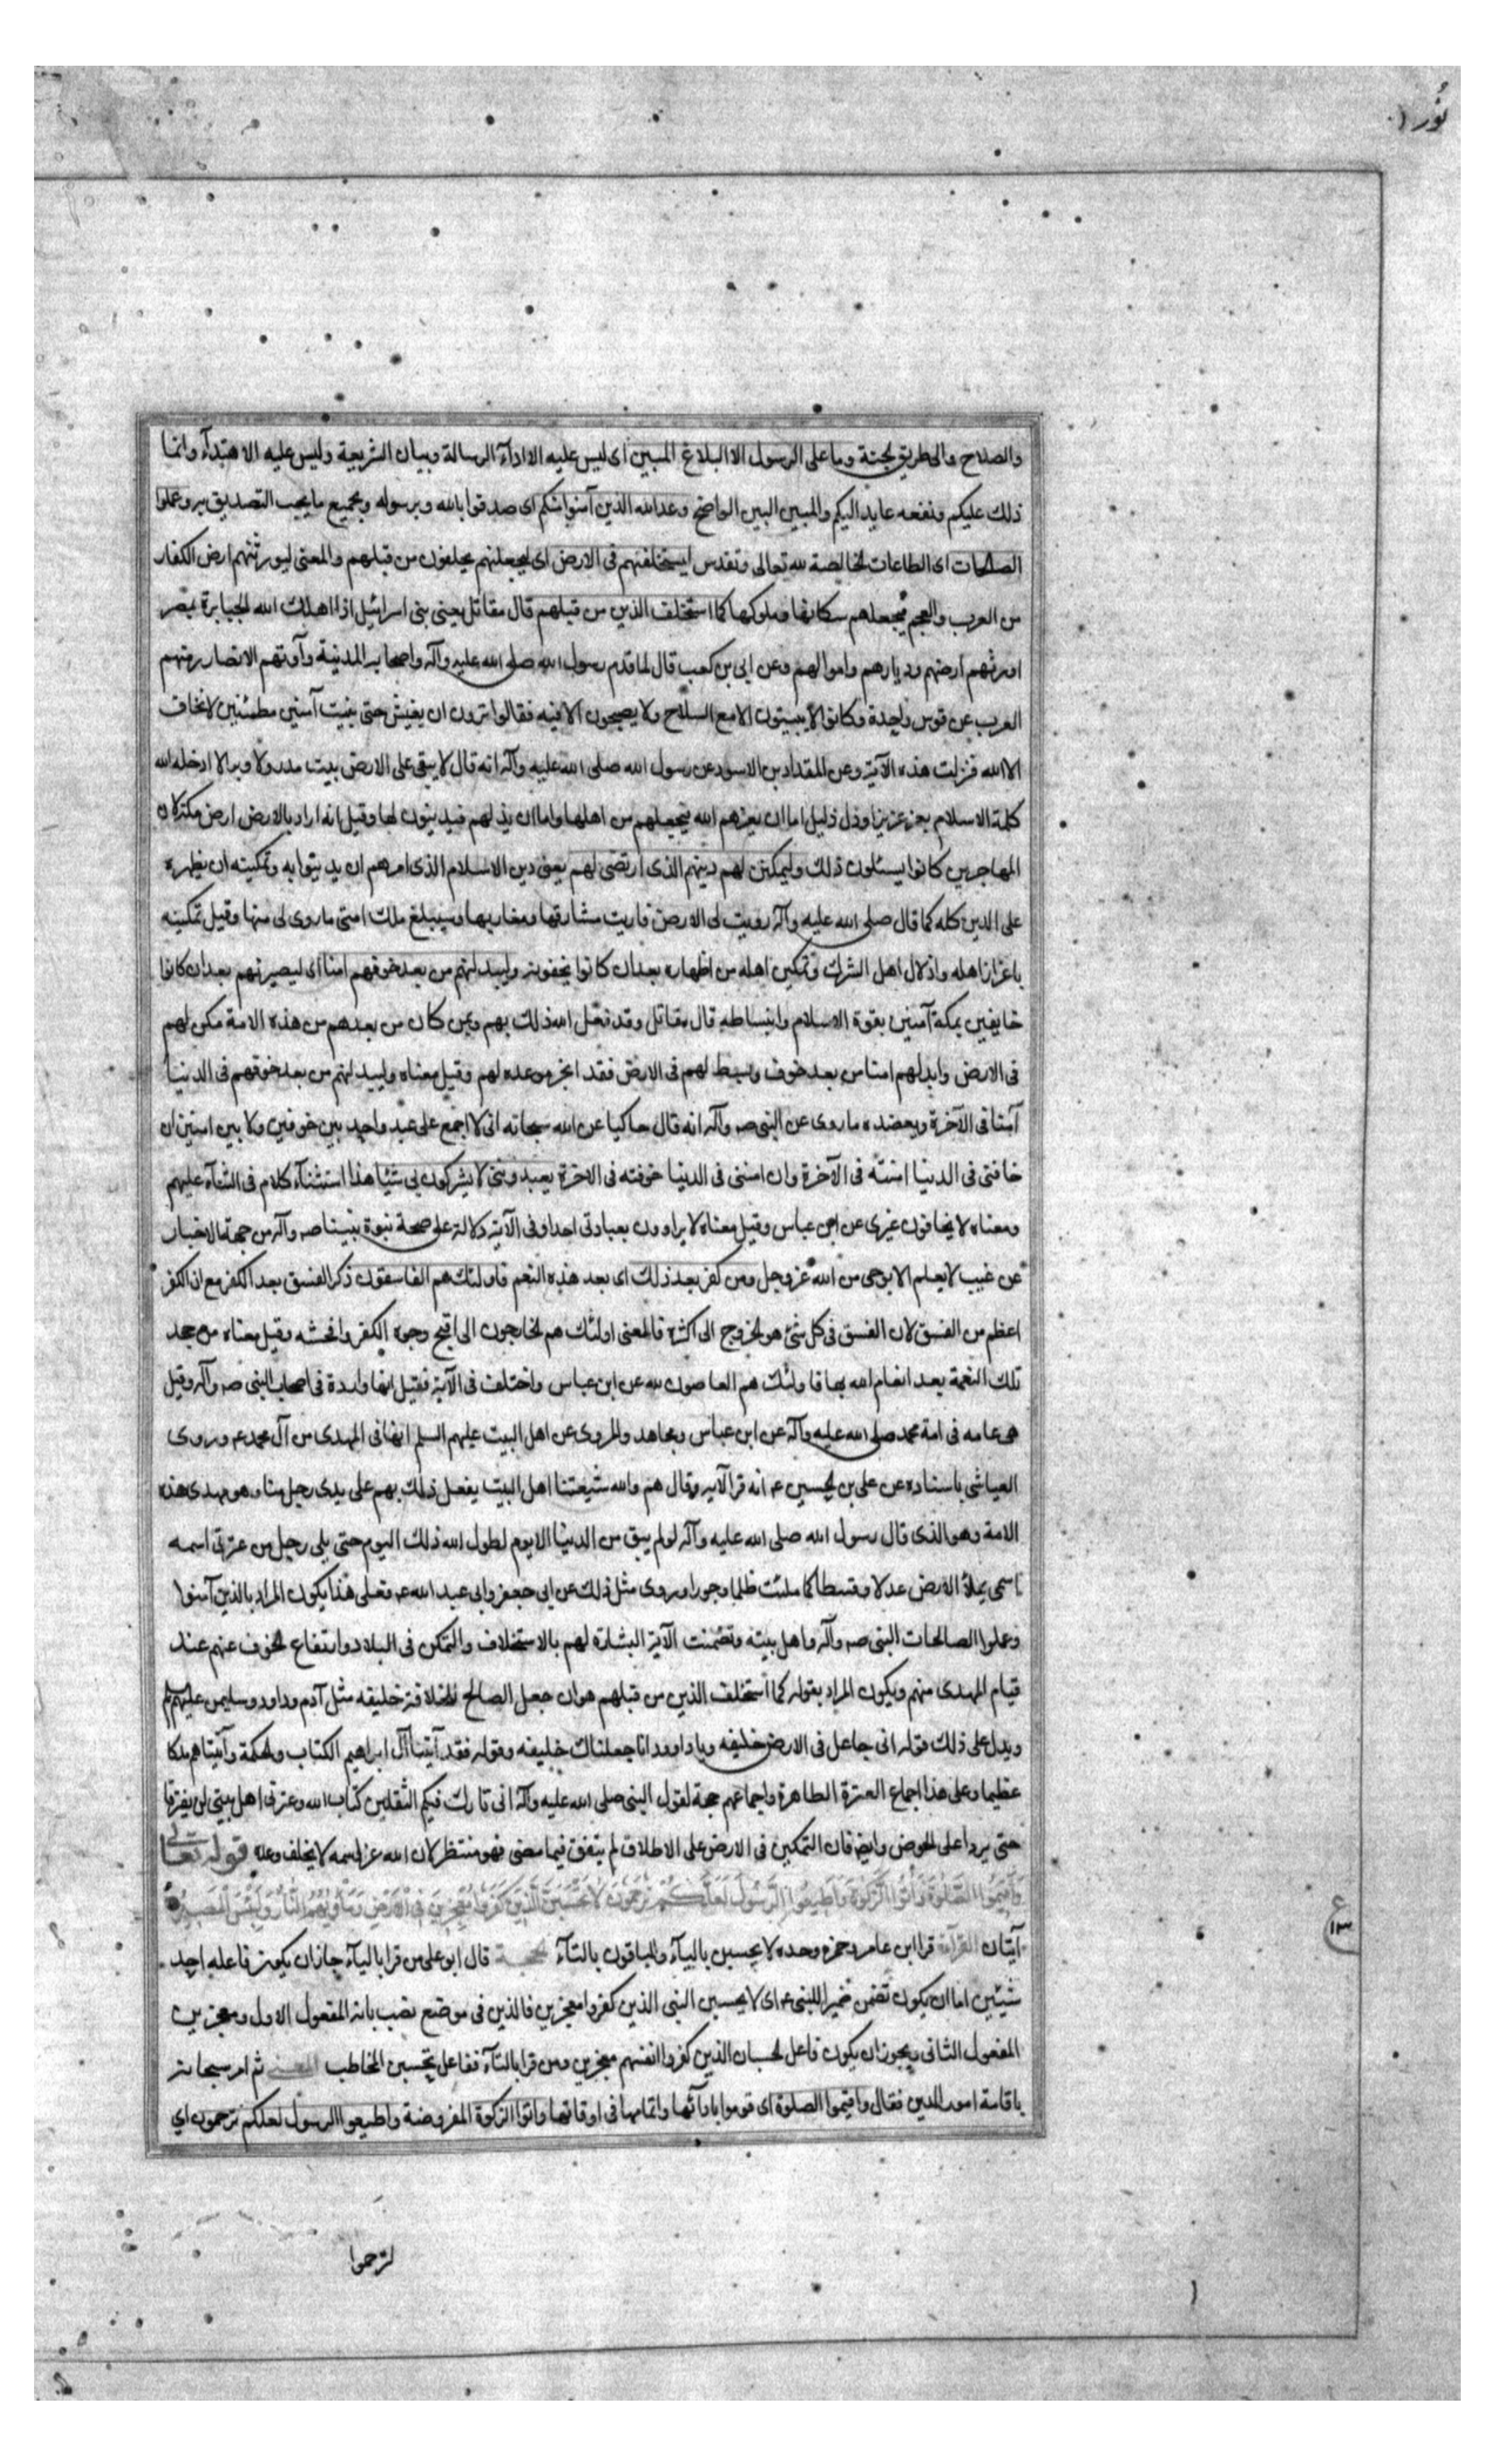 نور
والصلاح والى طريق الجنة وما على الرسول الا البلاغ المبين اى ليس عليه الا اداء الرسالة وبيان الشريعة وليس عليه الاهتداء وانما
ذلك عليكم ونفعه عايد اليكم والمبين البين الواضح وعد الله الذين آمنوا منكم اى صدقوا بالله وبرسوله وبجميع ما يجب التصديق به وعملوا
الصالحات اى الطاعات الخالصة لله تعالى وتقدس ليستخلفنهم فى الارض اى ليجعلنهم يخلفون من قبلهم والمعنى ليورثنهم ارض الكفار
من العرب والعجم فيجعلهم سكانها وملوكها كما استخلف الذين من قبلهم قال مقاتل يعنى بنى اسرائيل اذا اهلك الله الجبابرة بمصر
اورثهم ارضهم وديارهم واموالهم وعن ابى بن كعب قال لما قدم رسول الله صلى الله عليه وآله واصحابه المدينة وآوتهم الانصار رمتهم
العرب عن قوس واحدة وكانوا لا يبيتون الا مع السلاح ولا يصبحون الا فيه فقالوا ترون ان يعيش حتى نبيت آمنين مطمئنين لا نخاف
الا الله فنزلت هذه الآية وعن المقداد بن الاسود عن رسول الله صلى الله عليه وآله انه قال لا يبقى على الارض بيت مدر ولا وبر الا ادخله الله
كلمة الاسلام بعز عزيز او ذل ذليل اما ان يعزهم الله فيجعلهم من اهلها واما ان يذلهم فيدينون لها وقيل انه اراد بالارض ارض مكة لان
المهاجرين كانوا يسئلون ذلك وليمكنن لهم دينهم الذى ارتضى لهم يعنى دين الاسلام الذى امرهم ان يدينوا به وتمكينه ان يظهره
على الدين كله كما قال صلى الله عليه وآله زويت لى الارض فاريت مشارقها ومغاربها وسيبلغ ملك امتى ما زوى لى منها وقيل تمكينه
باعزاز اهله واذلال اهل الشرك وتمكين اهله من اظهاره بعد ان كانوا يخفونه وليبدلنهم من بعد خوفهم امنا اى ليصيرنهم بعد ان كانوا
خايفين بمكة آمنين بقوة الاسلام وانبساطه قال مقاتل وقد فعل الله ذلك بهم وبمن كان من بعدهم من هذه الامة مكن لهم
فى الارض وابدلهم امنا من بعد خوف وبسط لهم فى الارض فقد انجز موعده لهم وقيل معناه وليبدلنهم من بعد خوفهم فى الدنيا
آمنا فى الآخرة ويعضده ما روى عن النبى صه وآله انه قال حاكيا عن الله سبحانه انى لا اجمع على عبد واحد بين خوفين ولا بين امنين ان
خافنى فى الدنيا امنته فى الآخرة وان امننى فى الدنيا خوفته فى الاخرة يعبدوننى لا يشركون بى شيئا هذا استثناء كلام فى الثناء عليهم
ومعناه لا يخافون غيرى عن ابن عباس وقيل معناه لا يراءون بعبادتى احدا وفى الآية دلالة على صحة نبوة نبينا صه وآله من جهة الاخبار
عن غيب لا يعلم الا بوحى من الله عز وجل ومن كفر بعد ذلك اى بعد هذه النعم فاولئك هم الفاسقون ذكر الفسق بعد الكفر مع ان الكفر
اعظم من الفسق لان الفسق فى كل شئ هو الخروج الى اكثره فالمعنى اولئك هم الخارجون الى اقبح وجوه الكفر وافحشه وقيل معناه من جحد
تلك النعمة بعد انعام الله بها فاولئك هم العاصون لله عن ابن عباس واختلف فى الآية فقيل انها واردة فى اصحاب النبى صه وآله وقيل
هى عامه فى امة محمد صلى الله عليه وآله عن ابن عباس ومجاهد والمروى عن اهل البيت عليهم السلم انها فى المهدى من آل محمد ع وروى
العياشى باسناده عن على بن الحسين ع انه قرا الآيه وقال هم والله شيعتنا اهل البيت يفعل ذلك بهم على يدى رجل منا وهو مهدى هذه
الامة وهو الذى قال رسول الله صلى الله عليه وآله لو لم يبق من الدنيا الا يوم لطول الله ذلك اليوم حتى يلى رجل من عترتى اسمه
اسمى يملأ الارض عدلا وقسطا كما ملئت ظلما وجورا وروى مثل ذلك عن ابى جعفر وابى عبد الله ع فعلى هذا يكون المراد بالذين آمنوا
وعملوا الصالحات النبى صه وآله واهل بيته وتضمنت الآية البشارة لهم بالاستخلاف والتمكن فى البلاد وارتفاع الخوف عنهم عند
قيام المهدى منهم ويكون المراد بقوله كما استخلف الذين من قبلهم هو ان جعل الصالح للخلافة خليفه مثل آدم وداود وسليمن عليهم السلم
ويدل على ذلك قوله انى جاعل فى الارض خليفه ويا داوود انا جعلناك خليفه وقوله فقد آتينا آل ابراهيم الكتاب والحكمة وآتيناهم ملكا
عظيما وعلى هذا اجماع العترة الطاهرة واجماعهم حجة لقول النبى صلى الله عليه وآله انى تارك فيكم الثقلين كتاب الله وعترتى اهل بيتى لن يفترقا
حتى يردا على الحوض وايضا فان التمكين فى الارض على الاطلاق لم يتفق فيما مضى فهو منتظر لان الله عز اسمه لا يخلف وعده قوله تعالى
وَأَقِيمُوا الصَّلوةَ وَآتُوا الزَّكوةَ وَأَطِيعُوا الرَّسُولَ لَعَلَّكُمْ تُرْحَمُونَ لَا تَحْسَبَنَّ الَّذِينَ كَفَرُوا مُعْجِزِينَ فِي الْأَرْضِ وَمَأْوَيهُمُ النَّارُ وَلَبِئْسَ الْمَصِيرُ
آيتان القراءة قرا ابن عامر وحمزه وحده لا يحسبن بالياء والباقون بالتاء الحجة قال ابو على من قرا بالياء جاز ان يكون فاعله احد
شيئين اما ان يكون تضمن ضميرا للنبى ع اى لا يحسبن النبى الذين كفروا معجزين فالذين فى موضع نصب بانه المفعول الاول ومعجزين
المفعول الثانى ويجوز ان يكون فاعل الحسبان الذين كفروا انفسهم معجزين ومن قرا بالتاء ففاعل تحسبن المخاطب المعنى ثم امر سبحانه
باقامة امور الدين فقال واقيموا الصلوة اى قوموا باداءها واتمامها فى اوقاتها واتوا الزكوة المفروضة واطيعوا الرسول لعلكم ترحمون اى
لترحموا
ع
١٣